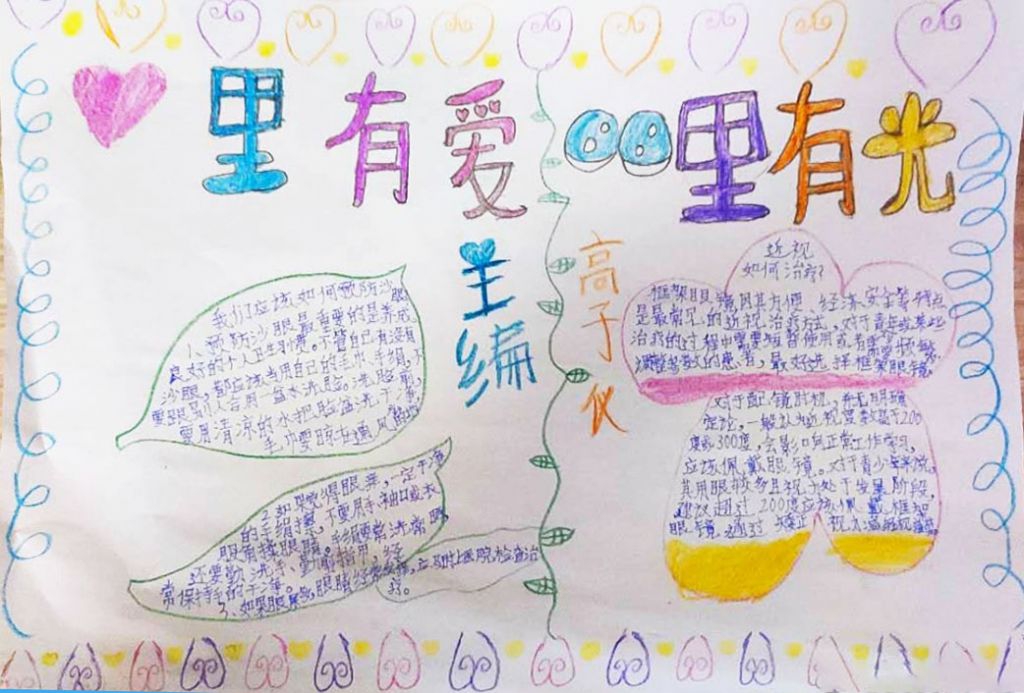 里有爱
里有光
主编
高子仪
我们应该如何预防沙眼
1、预防沙眼最重要的是养成
良好的个人卫生习惯。不管自己有没有
沙眼,都应该当用自己的毛巾,手绢,不
要跟别人合用一盆水洗脸。洗脸前,
要用清凉的水把脸盆洗干净,
毛巾要晾在通风
2、如果觉得眼痒,一定要
的手绢擦,不要用手、袖口或衣
服角揉眼睛。手绢要常洗常
还要勤洗手、勤剪指甲,经
常保持手的干净。
3、如果眼 眼睛经常 应及时上医院检查治
疗。
近视
如何治疗?
框架眼镜因其方便、经济、安全等特点
是最常见的近视治疗方式,对于青年或某些
治疗的过程中需要短暂使用或者需要频繁
调整度数的患者,最好选择框架眼镜。
对于配镜时机,并无明确
定论,一般认为近视度数在200
度或300度,会影响正常工作学习,
应该佩戴眼镜。对于青少年来说,
其用眼较多且视力处于发展阶段,
建议超过200度应该佩戴框架
眼镜,通过矫正视力